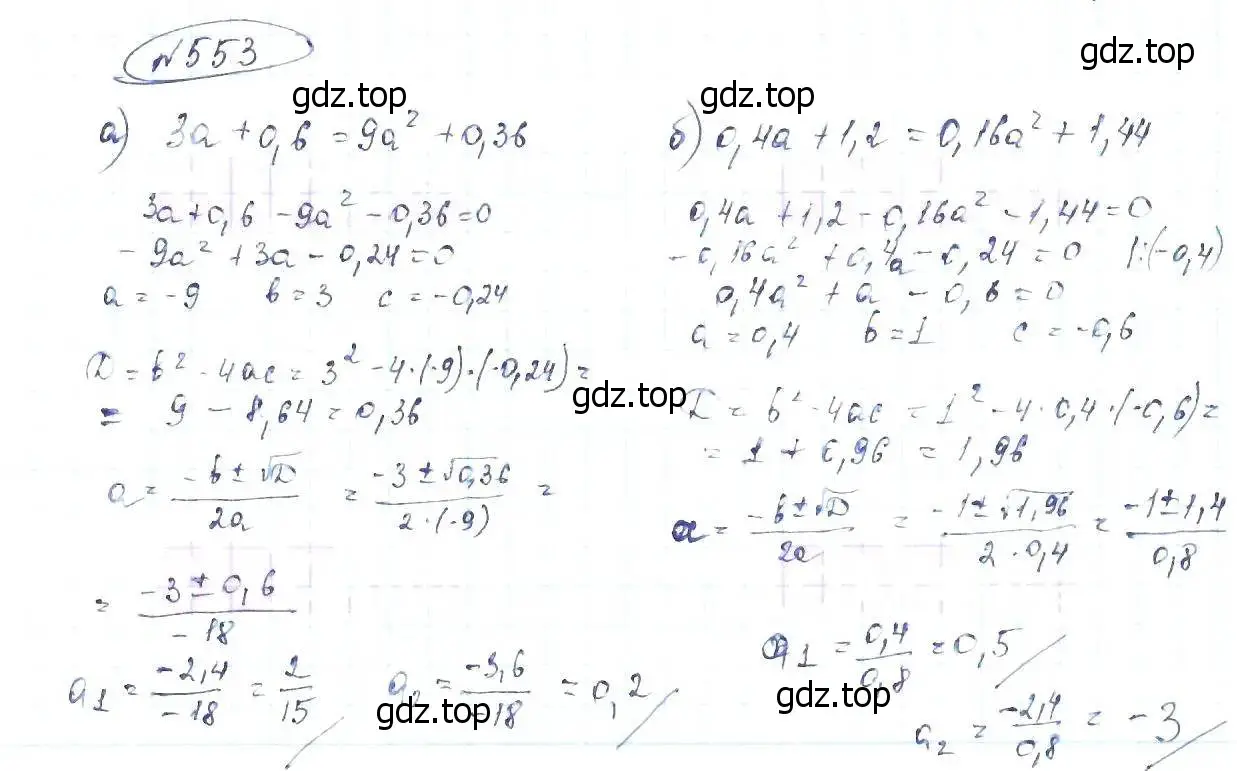 №553
gdz.top
gdz.top
gdz.top
а) 3a + 0,6 = 9a² + 0,36
3a + 0,6 - 9a² - 0,36 = 0
- 9a² + 3a - 0,24 = 0
a = -9 b = 3 c = -0,24
D = b² - 4ac = 3² - 4·(-9)·(-0,24) =
= 9 - 8,64 = 0,36
gdz.top
a = (-b ± √D)/(2a) = (-3 ± √0,36)/(2·(-9)) =
= (-3 ± 0,6)/(-18)
a₁ = (-2,4)/(-18) = 2/15 a₂ = (-3,6)/(-18) = 0,2
gdz.top
б) 0,4a + 1,2 = 0,16a² + 1,44
0,4a + 1,2 - 0,16a² - 1,44 = 0
- 0,16a² + 0,4a - 0,24 = 0 |:(-0,4)
0,4a² + a - 0,6 = 0
a = 0,4 b = 1 c = -0,6
D = b² - 4ac = 1² - 4·0,4·(-0,6) =
= 1 + 0,96 = 1,96
a = (-b ± √D)/(2a) = (-1 ± √1,96)/(2·0,4) = (-1 ± 1,4)/(0,8)
a₁ = 0,4/0,8 = 0,5
a₂ = -2,4/0,8 = -3
gdz.top